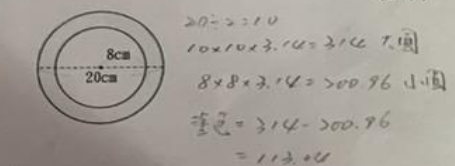 8cm
20cm
20÷2=10
10×10×3.14=314 大圓
8×8×3.14=200.96 小圓
塗色=314-200.96
=113.04